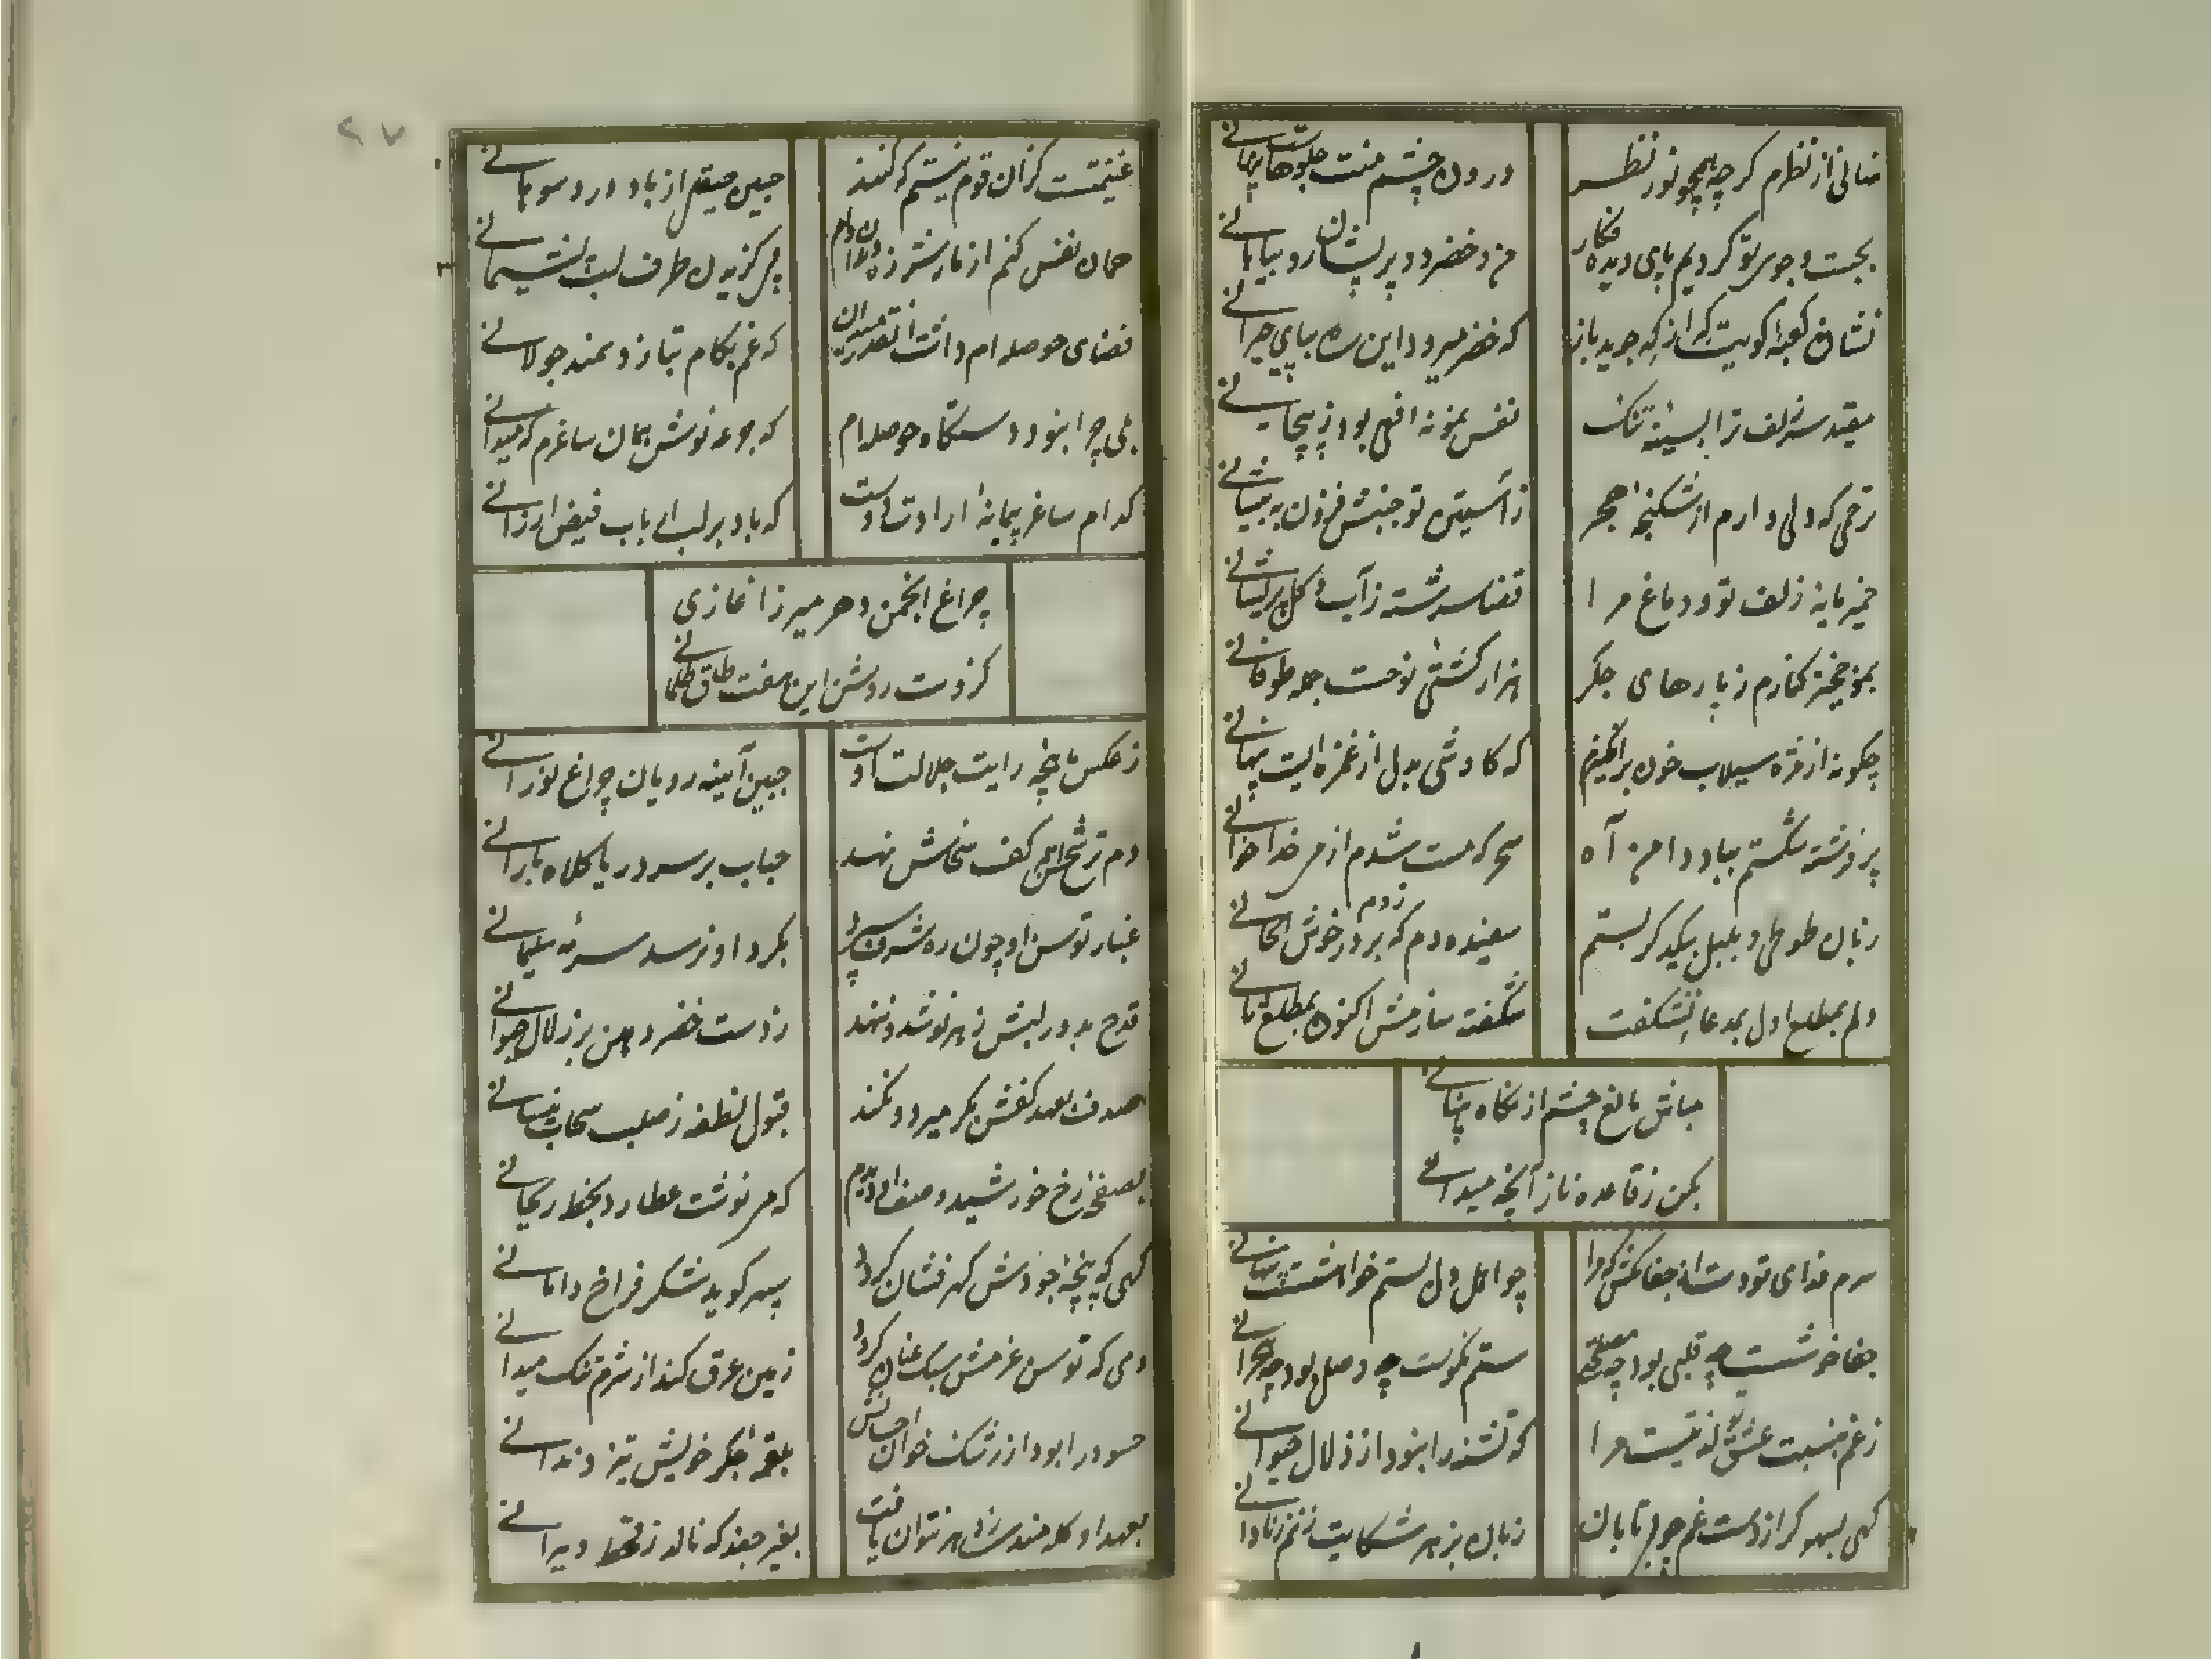 نهانی از نظرم گرچه همچو نور نظر
درون چشم منت جلوهاست پنهانی
بجست و جوی تو کردیم پای دیده فکار
من و خضر دو پریشان رو بیابانی
نشان کعبه کویت که از که جوید باز
که خضر میرود این ره بپای حیرانی
مقید سر زلف ترا بسینه تنک
نفس نمونه افعی بود ز پیچانی
ترحمی که دلی دارم از شکنجه هجر
ز آستین تو جنبش فزون به بیتابی
خمیرمایه زلف تو و دماغ مرا
قضا سرشته ز آب و گل پریشانی
بموج خیز کنارم ز پارهای جگر
هزار کشتی نوحست جمله طوفانی
چگونه از مژه سیلاب خون برانگیزم
که کاوشی بدل از غمزه ایست پنهانی
پر فرشته شکستم بباد دامن آه
سحر که مست شدم از می خدا خوانی
زبان طوطی و بلبل بیکدگر بستم
سفینه دم که زدم بر در خوش الحانی
دلم بمطلع اول بمدعا نشکفت
شکفته سازمش اکنون بمطلع ثانی
مباش مانع چشم از نگاه پنهانی
بکن ز قاعده ناز آنچه میدانی
سرم فدای تو دست از جفا مکش که مرا
چو اهل دل ستم خواهشیست پنهانی
جفا خوشست چه قلبی بود چه
ستم نکوست چه وصلی بود چه هجرانی
ز غم نسبت عشق تو لذتیست مرا
که تشنه را نبود از زلال حیوانی
گهی بسهو گر از دست غم چو بیتابان
زبان بزهر شکایت زنم ز نادانی
غنیمتست کزان قوم نیستم که کنند
جبین صیقلی از باد درد سوهانی
همان نفس کنم از مار نشتر زه وام
پی گزیدن طرف لب پشیمانی
فضای حوصله ام داشت آنقدر میدان
که غم بکام تبازد سمند جولانی
بلی چرا نبود دستگاه حوصله ام
که جرعه نوش همان ساغرم که میدانی
کدام ساغر پیمانه ارادت دوست
که باد بر لب ارباب فیض ارزانی
چراغ انجمن دهر میرزا غازی
کزوست روشن این هفت طاق ظلمانی
ز عکس ماهچه رایت جلالت اوست
جبین آینه رویان چراغ نورانی
دم ترشح اگر کف سخاش نهد
حباب بر سر دریا کلاه بارانی
غبار توسن او چون ره شرف سپرد
بگرد او نرسد سرمه سلیمانی
قدح بدور لبش زهر نوشد و ننهد
ز دست خضر دهن بر زلال حیوانی
صدف بعهد کفش بکر میرود نکند
قبول نطفه ز صلب سحاب نیسانی
بصفحه رخ خورشید وصف او دیدم
که می نوشت عطارد بخط ریحانی
گهی که پنجه جودش گهر فشان گردد
سپهر گوید شکر فراخ دامانی
دمی که توسن عزمش سبک عنان گردد
زمین عرق کند از شرم تنک میدانی
حسود را بود از رشک خوان احسانش
بلقمه جگر خویش تیز دندانی
بعهد او گله مند سپهر نتوان یافت
بغیر جغد که نالد ز قحط ویرانی